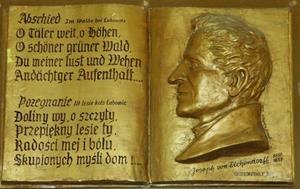 Abschied Im Walde bei Lubowitz
O Täler weit, o Höhen,
O schöner grüner Wald,
Du meiner Lust und Wehen
Andächtger Aufenthalt...
Pożegnanie W lesie koło Łubowic
Doliny wy, o szczyty,
Przepiękny lesie ty,
Radości mej i bólu,
Skupionych myśli dom!...
Joseph von Eichendorff